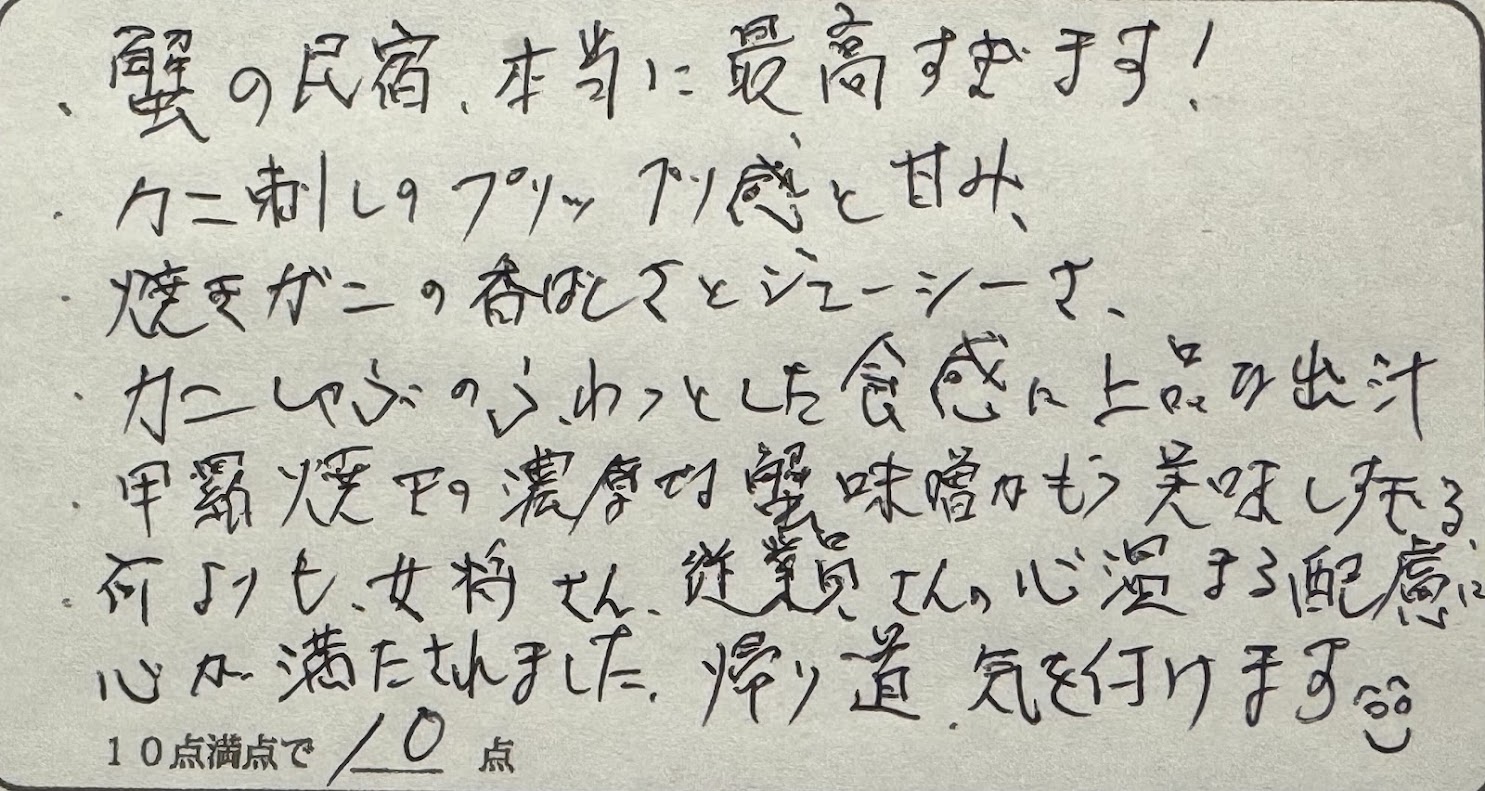 蟹の民宿、本当に最高すぎます!
カニ刺しのプリップリ感と甘み、
焼きガニの香ばしさとジューシーさ、
カニしゃぶのふわっとした食感に上品な出汁
甲羅焼きの濃厚な蟹味噌がもう美味しすぎる
何よりも、女将さん、従業員さんの心温まる配慮に
心が満たされました。帰り道、気を付けます
10点満点で 10 点